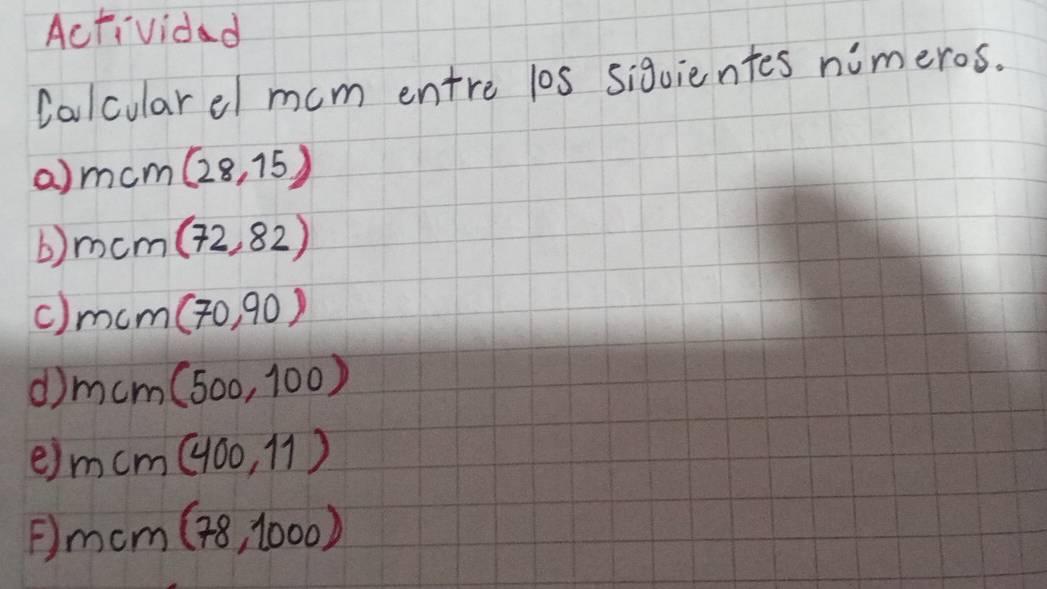 Actividad
Calcular el mcm entre los siguientes números.
a) mcm (28, 15)
b) mcm (72, 82)
c) mcm (70, 90)
d) mcm (500, 100)
e) mcm (400, 11)
F) mcm (78, 1000)